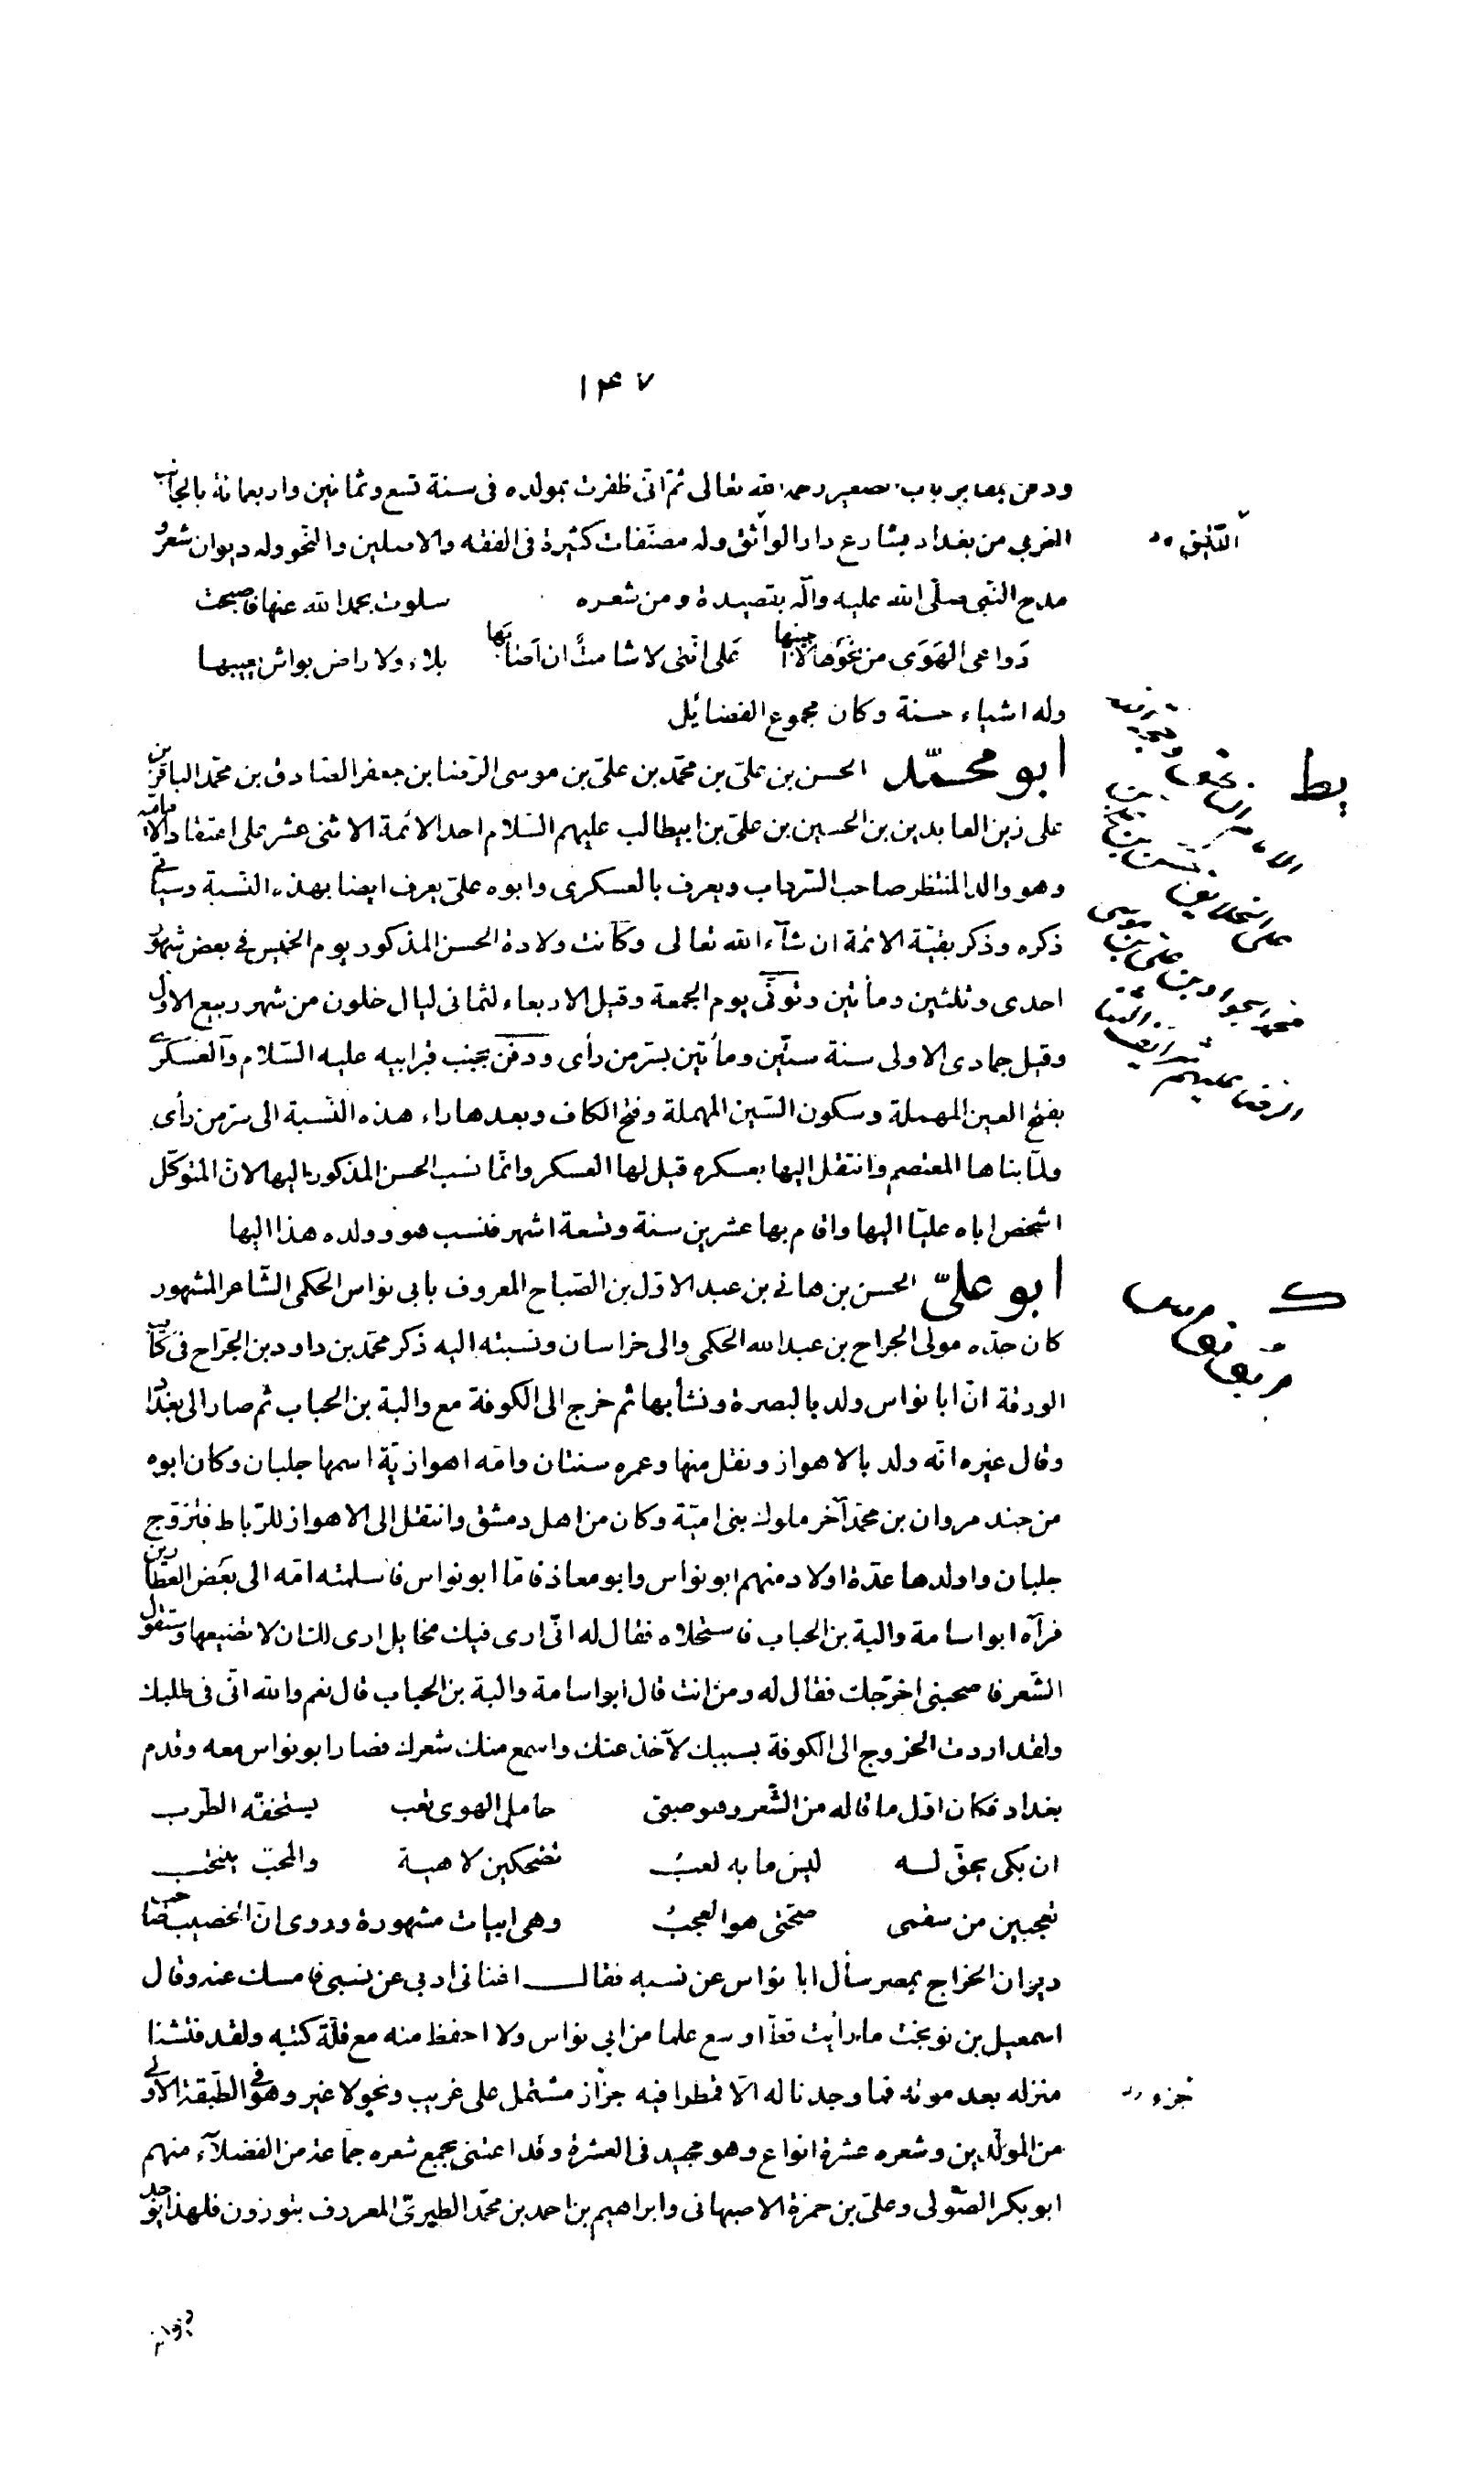 ۱۴۷
ودفن بمقابر باب الصغير رحمه الله تعالى ثمّ انّى ظفرت بمولده فى سنة تسع وثمانين واربعمائة بالجانب
الغربي من بغداد بشارع دار الوانثق وله مصنّفات كثيرة فى الفقه والاصلين والنّحو وله ديوان شعر و
مدح النّبى صلّى الله عليه وآله بقصيدة ومن شعره سلوت بحمد الله عنها فاصبحت
دَواعى الهَوَى من نَحْوِها لا اجيبُها عَلى انّنى لا شامتٌ ان اَصابَها بلاء ولا راض بواش يعيبها
وله اشياء حسنة وكان مجموع الفضائل
ابو محمّد الحسن بن علىّ بن محمّد بن علىّ بن موسى الرّضا بن جعفر الصّادق بن محمّد الباقر بن
على زين العابدين بن الحسين بن علىّ بن ابيطالب عليهم السّلام احد الائمة الاثنى عشر على اعتقاد الاماميّة
وهو والد المنتظر صاحب السّرداب ويعرف بالعسكرى وابوه علىّ يعرف ايضا بهذه النّسبة وسيأتى
ذكره وذكر بقيّة الائمة ان شآء الله تعالى وكانت ولادة الحسن المذكور يوم الخميس فى بعض شهور
احدى وثلثين ومأتين وتوفّى يوم الجمعة وقيل الاربعاء لثمانى ليال خلون من شهر ربيع الاوّل
وقيل جمادى الاولى سنة ستّين ومأتين بسرّ من رأى ودفن بجنب قبر ابيه عليه السّلام والعسكرى
بفتح العين المهملة وسكون السّين المهملة وفتح الكاف وبعدها راء هذه النّسبة الى سرّ من رأى
ولمّا بناها المعتصم وانتقل اليها بعسكره قيل لها العسكر وانّما نسب الحسن المذكور اليها لانّ المتوكّل
اشخص اباه عليّا اليها واقام بها عشرين سنة وتسعة اشهر فنسب هو وولده هذا اليها
ابو علىّ الحسن بن هانى بن عبد الاوّل بن الصّباح المعروف بابى نواس الحكمى الشّاعر المشهور
كان جدّه مولى الجراح بن عبد الله الحكمى والى خراسان ونسبته اليه ذكر محمّد بن داود بن الجرّاح فى كتاب
الورقة انّ ابا نواس ولد بالبصرة ونشأ بها ثم خرج الى الكوفة مع والبة بن الحباب ثم صار الى بغداد
وقال غيره انّه ولد بالاهواز ونقل منها وعمره سنتان وامّه اهوازيّة اسمها جلبان وكان ابوه
من جند مروان بن محمّد آخر ملوك بنى اميّة وكان من اهل دمشق وانتقل الى الاهواز للرّباط فتزوّج
جلبان واولدها عدّة اولاد منهم ابو نواس وابو معاذ فامّا ابو نواس فاسلمته امّه الى بعض العطّارين
فرآه ابو اسامة والبة بن الحباب فاستحلاه فقال له انّى ارى فيك مخايل ارى لك ان لا تضيعها وستقول
الشّعر فاصحبنى اخرّجك فقال له ومن انت قال ابو اسامة والبة بن الحباب قال نعم والله انّى فى طلبك
ولقد اردت الخروج الى الكوفة بسببك لآخذ عنك واسمع منك شعرك فصار ابو نواس معه وقدم
بغداد فكان اوّل ما قاله من الشّعر وهو صبىّ حامل الهوى تعب يستخفّه الطّرب
ان بكى يحقّ له ليس ما به لعبُ تضحكين لاهية والمحبّ ينتحب
تعجبين من سقمى صحّتى هو العجبُ وهى ابيات مشهورة وروى انّ الخصيب صاحب
ديوان الخراج بمصر سأل ابا نواس عن نسبه فقال اغنانى ادبى عن نسبى فامسك عنه وقال
اسمعيل بن نوبخت ما رأيت قطّ اوسع علما من ابى نواس ولا احفظ منه مع قلّة كتبه ولقد فتشنا
منزله بعد موته فما وجدنا له الّا قمطرا فيه جزاز مشتمل على غريب ونحو لا غير وهو فى الطّبقة الاولى
من المولّدين وشعره عشرة انواع وهو مجيد فى العشرة وقد اعتنى بجمع شعره جماعة من الفضلآء منهم
ابو بكر الصّولى وعلىّ بن حمزة الاصبهانى وابراهيم بن احمد بن محمّد الطبرىّ المعروف بتوزون فلهذا يوجد
يط
ك
ابو نواس
جزء